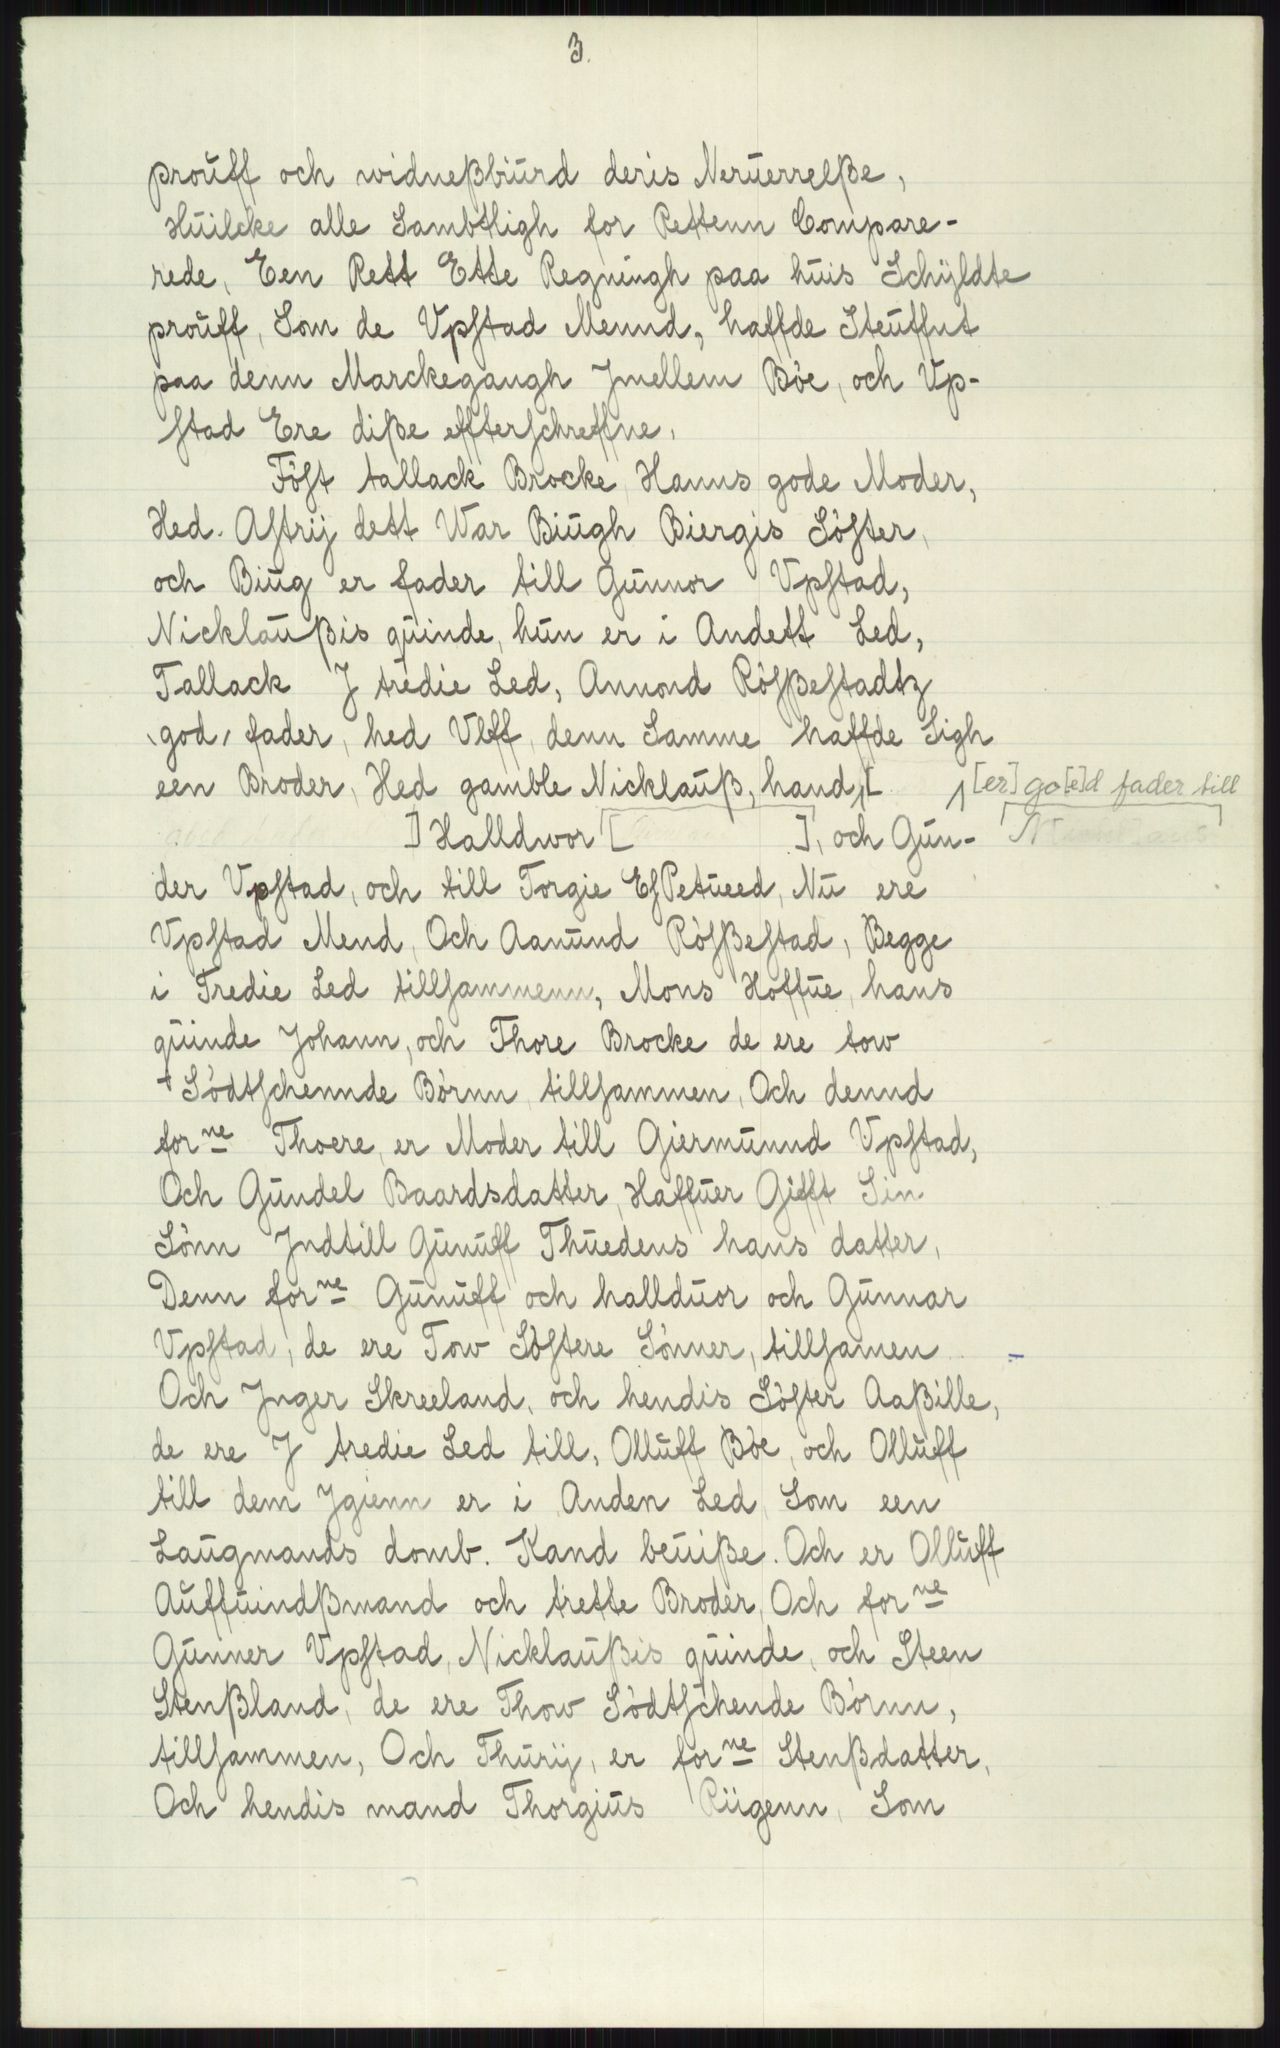 3.
prouff och widneßbiurd deris Neruerrelße,
Huilcke alle Sambtligh for Rettenn Compare-
rede, Een Rett Ette Regningh paa huis Schÿldte
prouff, Som de Vpstad Mennd, haffde Steuffnt
paa denn Marckegangh Jmellem Bòe, och Vp-
stad Ere diße effterschreffne,
Fòst tallack Brocke, Hanns gode Moder,
Hed. Astrij dett War Biugh Biergis Sòster,
och Biug er fader till Gunnor Vpstad,
Nicklaußis quinde, hun er i Andett Led,
Tallack J tredie Led, Annond Ròsßestadtz
god, fader, hed Vlff, denn Samme haffde Sigh
een Broder, Hed gamble Nicklauß, hand, [
[er] go[e]d fader till
] Halldwor [ ], och Gun-
der Vpstad, och till Torgie EsPetueed, Nu ere
Vpstad Mend, Och Aanund Ròsßestad, Begge
i Tredie Led tillsammenn, Mons Hoffue, hans
quinde Johann, och Thore Brocke de ere tow
+ Sòdtschennde Bòrnn tillsammen, Och dennd
forne Thoere, er Moder till Giermunnd Vpstad,
Och Gundel Baardsdatter, Haffuer Gifft Sin
Sònn Jndtill Gunuff Thuedens hans datter,
Denn forne Gunuff och hallduor och Gunnar
Vpstad, de ere Tow Sòstere Sònner, tillsamen
Och Jnger Skreeland, och hendis Sòster Aaßille,
de ere J tredie Led till, Olluff Bòe, och Olluff
till dem Jgienn er i Anden Led, Som een
Laugmands domb. Kand beuiße. Och er Olluff
Auffuindßmand och trette Broder, Och forne
Gunner Vpstad, Nicklaußis quinde, och Steen
Stenßland, de ere Thow Sòdtschende Bòrnn,
tillsammen, Och Thurij, er forne Stenßdatter,
Och hendis mand Thorgius Riigenn, Som